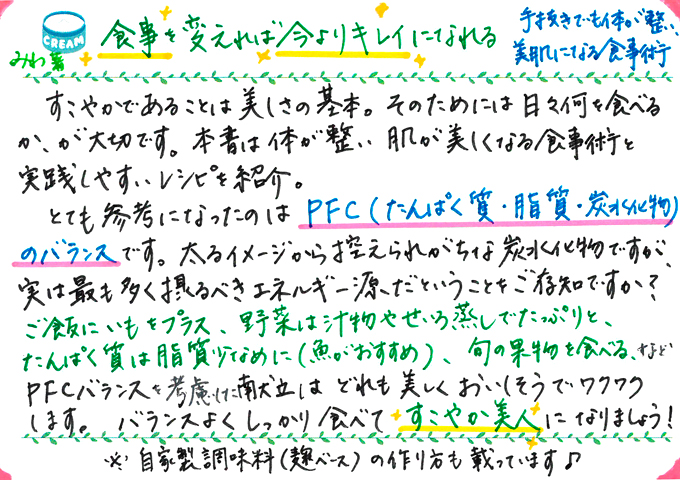 CREAM
食事を変えれば今よりキレイになれる
みわ著
手抜きでも体が整い、
美肌になる食事術
すこやかであることは美しさの基本。そのためには日々何を食べる
か、が大切です。本書は体が整い肌が美しくなる食事術と
実践しやすいレシピを紹介。
とても参考になったのは PFC(たんぱく質・脂質・炭水化物)
のバランスです。太るイメージから控えられがちな炭水化物ですが、
実は最も多く摂るべきエネルギー源、だということをご存知ですか?
ご飯にいもをプラス、野菜は汁物やせいろ蒸しでたっぷりと、
たんぱく質は脂質少なめに(魚がおすすめ)、旬の果物を食べる、など
PFCバランスを考慮した献立は どれも美しくおいしそうでワクワク
します。 バランスよくしっかり食べて すこやか美人 になりましょう!
※ 自家製調味料(麹ベース)の作り方も載っています♪